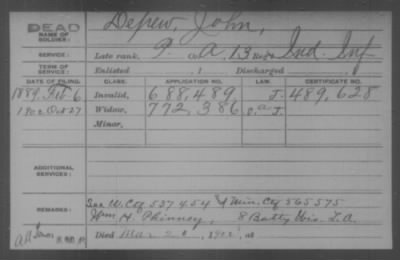 DEAD
NAME OF SOLDIER: Depew, John,
SERVICE: Late rank, P. Co. A, 13 Reg't Ind. Inf
TERM OF SERVICE: Enlisted 1 Discharged
DATE OF FILING. CLASS. APPLICATION NO. LAW. CERTIFICATE NO.
1889, Feb 6 Invalid, 688,489 J. 489,628
1902 Oct 27 Widow, 772,386
Minor,
ADDITIONAL SERVICES:
REMARKS: See W. Ctf 537454 & Min. Ctf 565575
Wm H. Phinney, 8 Batty Wis. L.A.
Died Mar 20, 1902, at